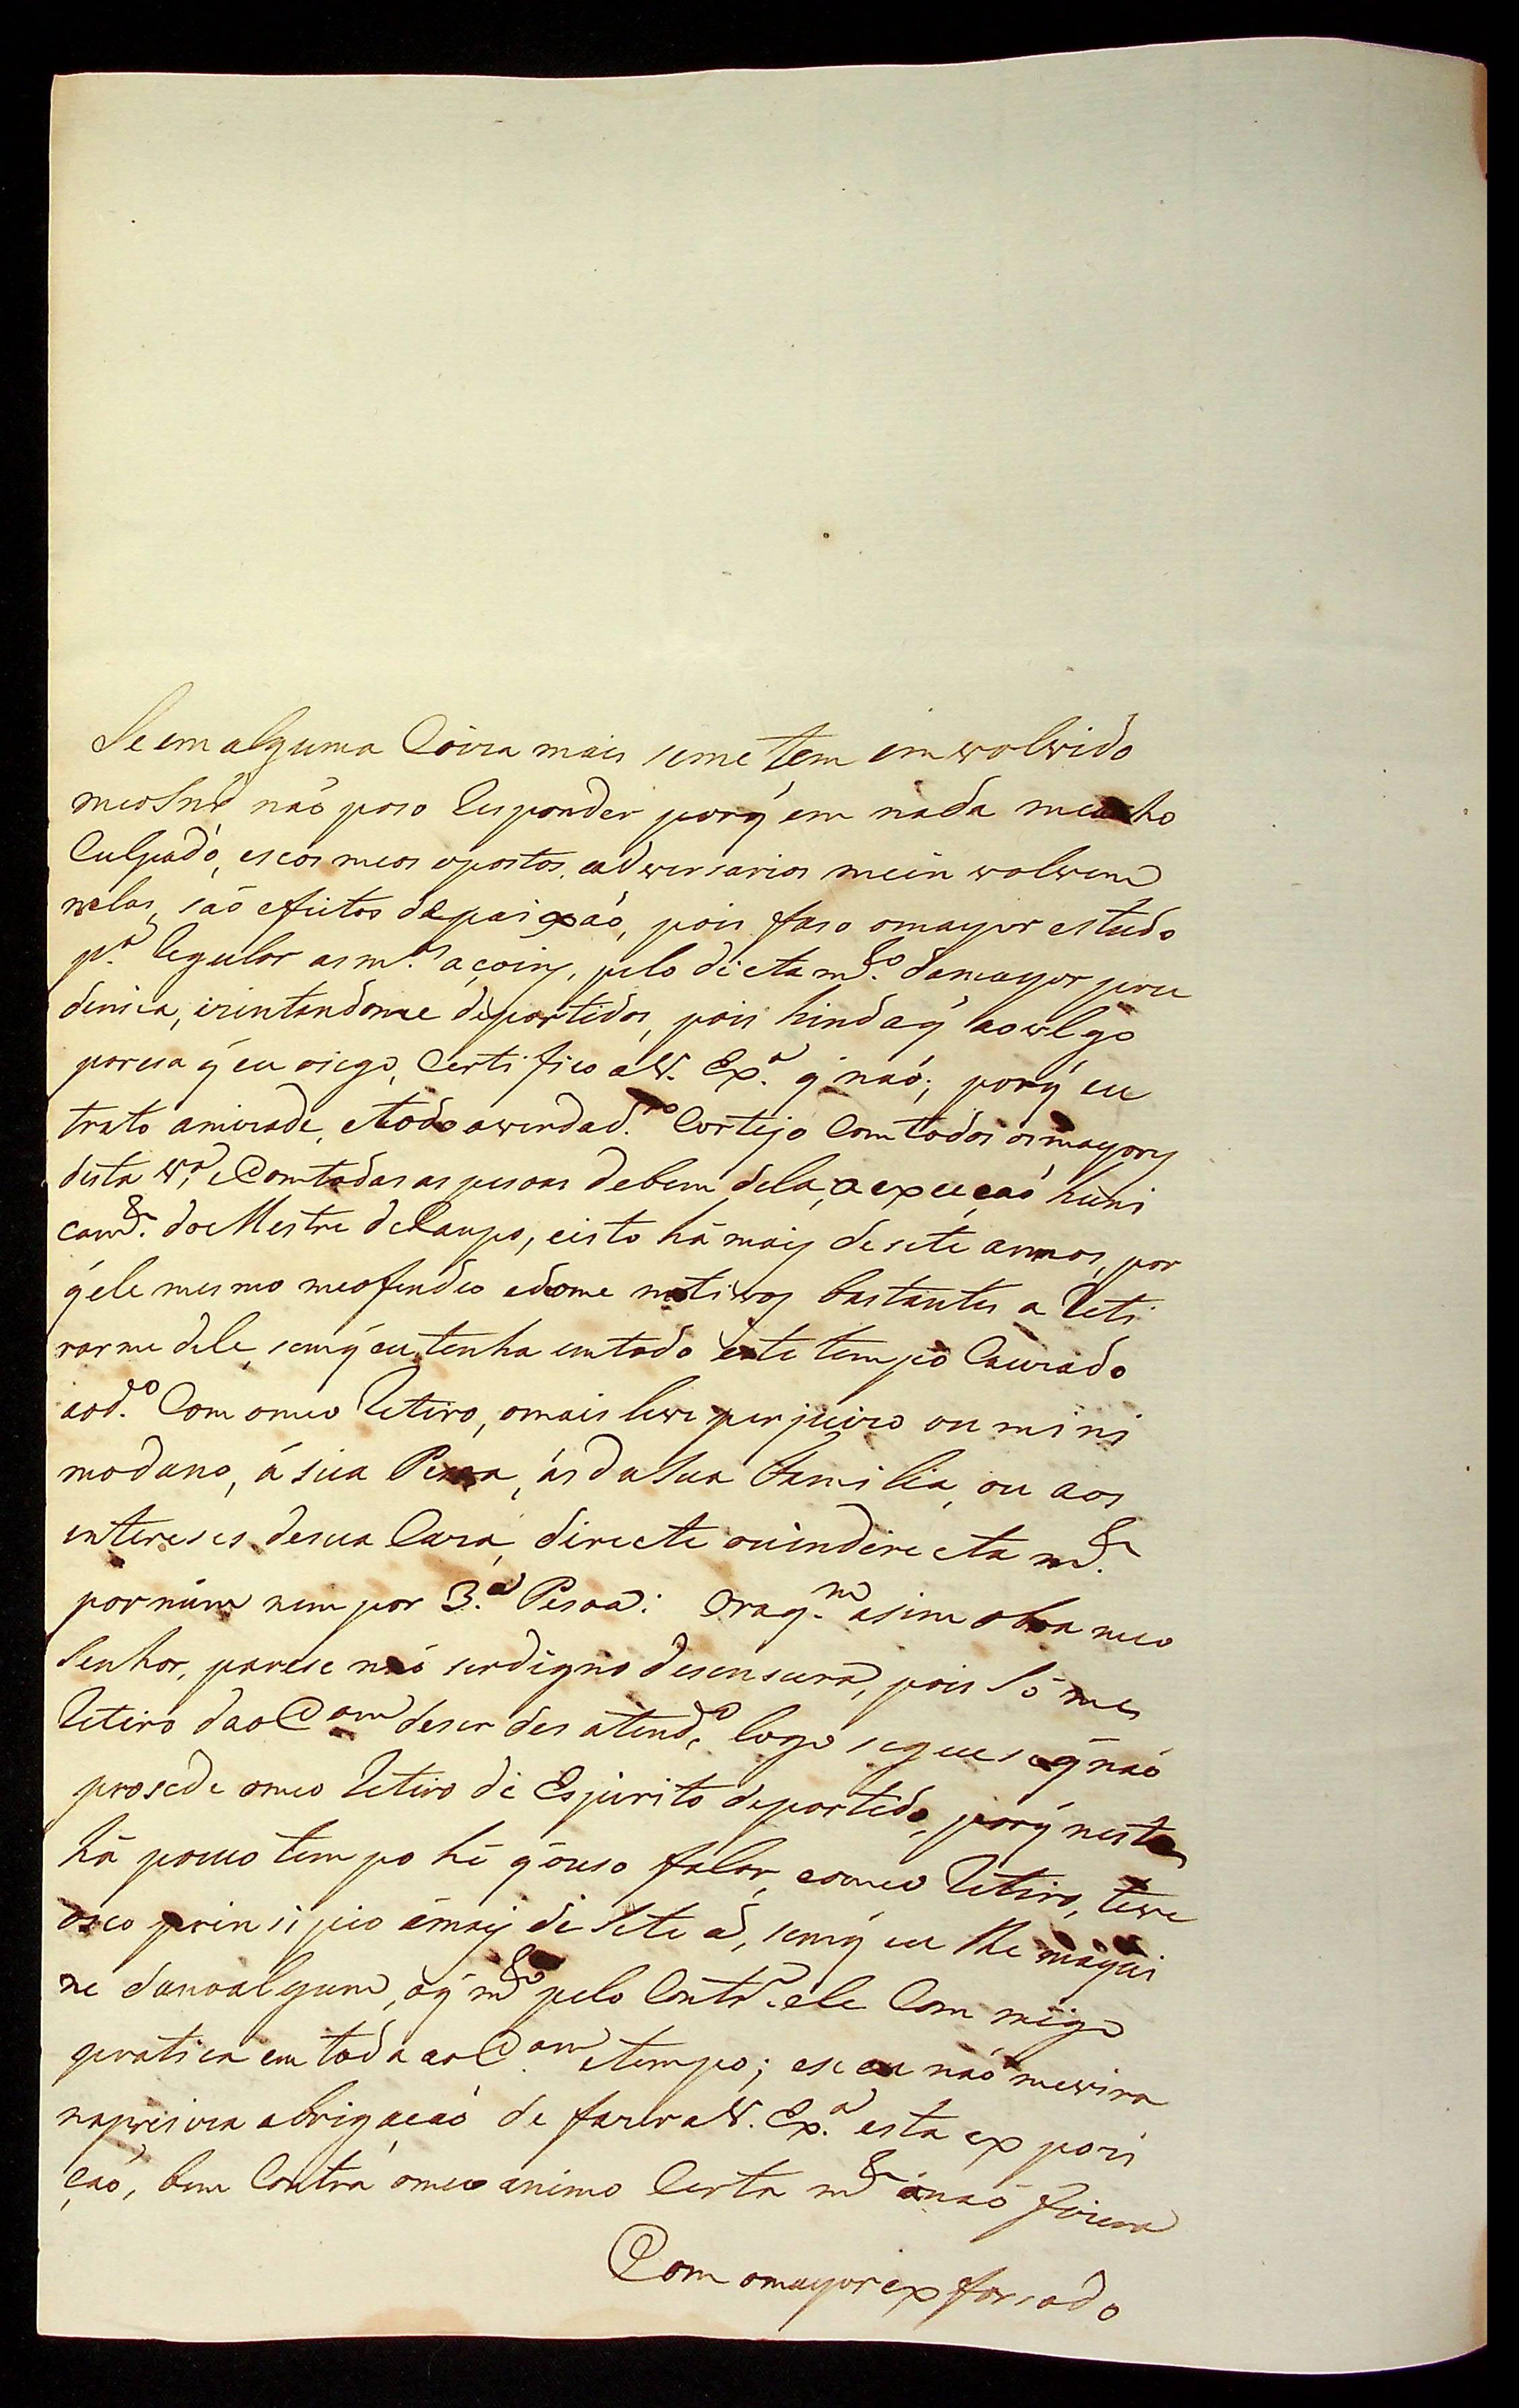 Se em alguma Coiza mais seme tem imwolwido
meo Snr̃ naõ poso Responder porq̃ em nada me acho
Culpado, eseos meos opostos, eadwersarios mein wolwem
nelas, saõ efeitos depaixaõ, pois faso omayor estudo
p.ª Regular asm.ª açoins, pelo dictam.to damayor pru
dencia, izintandome departidos, pois hinda q̃ aowlgo
paresa q̃ eu osigo, Certifico aW. Ex.ª q̃ naõ; porq̃ eu
trato amizade, etodo awerdad.ro Cortejo Com todos osmayorẽs
desta W.ª eCom todas as pesoas debem dela, a expceçaõ huni
cam.te doeMestre deCampo, eisto há mais desete annos, por
q̃ ele mesmo meofendeo edeome motiwos bastantes a Reti
rarme dele, semq̃ eu tenha emtodo este tempo Cauzado
aod.º Com omeo Retiro, omais lewe perjuizo ou mini
modano, á sua Pesoa, ás da Sua Familia, ou aos
intereses desua Caza, directe ouindirecta m.te
pormim nem por 3.ª Pesoa: Oraq.m asim obra meo
Senhor, parese naõ serdigno desensura, pois Só me
Retiro daoCam deser des atend.º logo seguese q̃ naõ
prosede omeo Retiro de Espirito departido, porq̃ nestes
há pouco tempo hé q̃ ouso falar, eomeo Retiro, tewe
oseo prinsipio ámais de Sete a.s, semq̃ eu lhe maqui
ne danoalgum, oq̃ m.to pelo Contr.º ele Com migo
pratica em toda aoCam etempo; ese eu naõ mewira
napresiza obrigaçaõ de fazer aW. Ex.ª esta expozi
çaõ, bem Contra omeo animo Certa m.te onaõ fizera
Com omayor exforsado